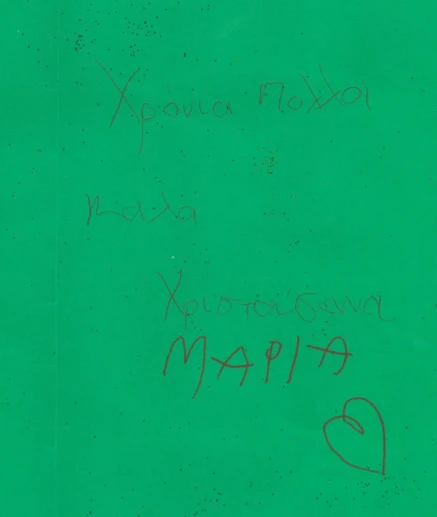 Χρόνια πολλά
καλά
Χριστούγεννα
ΜΑΡΙΑ